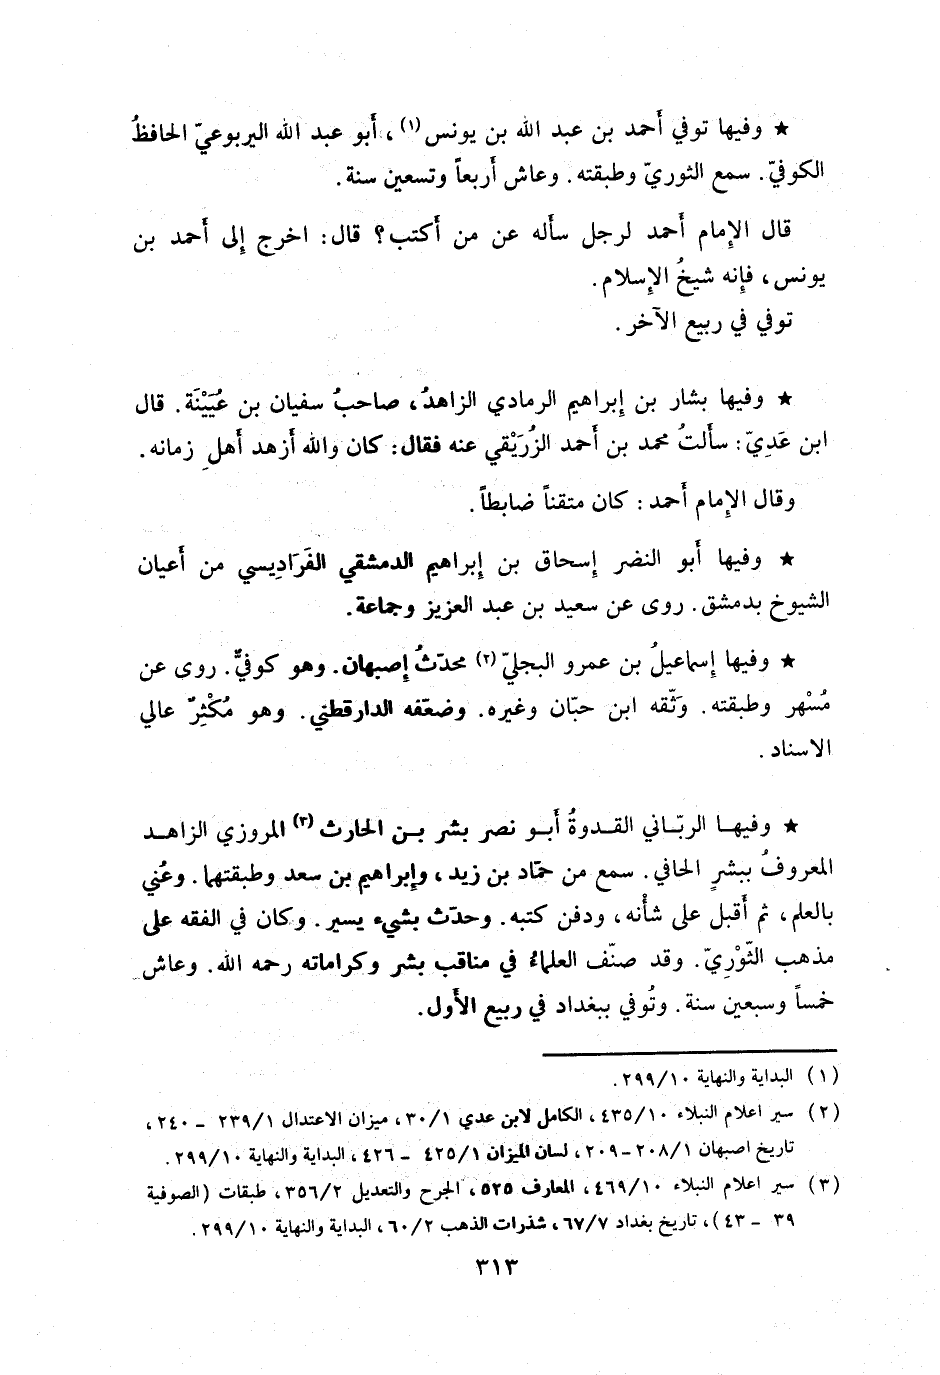 ★ وفيها توفي أحمد بن عبد الله بن يونس (١)، أبو عبد الله اليربوعيّ الحافظُ
الكوفيّ. سمع الثوريّ وطبقته. وعاش أربعاً وتسعين سنة.
قال الإمام أحمد لرجل سأله عن من أكتب؟ قال: اخرج إلى أحمد بن
يونس، فإنه شيخُ الإسلام.
توفي في ربيع الآخر.
★ وفيها بشار بن إبراهيم الرمادي الزاهدُ، صاحبُ سفيان بن عُيَيْنَة. قال
ابن عَدِيّ: سألتُ محمد بن أحمد الزُرَيْقي عنه فقال: كان والله أزهد أهلِ زمانه.
وقال الإمام أحمد: كان متقناً ضابطاً.
★ وفيها أبو النضر إسحاق بن إبراهيم الدمشقي الفَرَادِيسي من أعيان
الشيوخ بدمشق. روى عن سعيد بن عبد العزيز وجماعة.
★ وفيها إسماعيلُ بن عمرو البجليّ (٢) محدّثُ إصبهان. وهو كوفيٌّ. روى عن
مُسْهر وطبقته. وَثّقه ابن حبّان وغيره. وضعّفه الدارقطني. وهو مُكْثِرٌ عالي
الاسناد.
★ وفيهـا الربّـاني القـدوةُ أبـو نصر بشر بـن الحارث (٣) المروزي الزاهـد
المعروفُ ببشرٍ الحافي. سمع من حمّاد بن زيد، وإبراهيم بن سعد وطبقتهما. وعُني
بالعلم، ثم أقبل على شأْنه، ودفن كتبه. وحدّث بشيء يسير. وكان في الفقه على
مذهب الثّوْرِيّ. وقد صنّف العلماءُ في مناقب بشر وكراماته رحمه الله. وعاش
خمساً وسبعين سنة. وتُوفي ببغداد في ربيع الأول.
(١) البداية والنهاية ٢٩٩/١٠.
(٢) سير اعلام النبلاء ٤٣٥/١٠، الكامل لابن عدي ٣٠/١، ميزان الاعتدال ٢٣٩/١ ـ ٢٤٠،
تاريخ اصبهان ٢٠٨/١ـ٢٠٩، لسان الميزان ٤٢٥/١ ـ ٤٢٦، البداية والنهاية ٢٩٩/١٠.
(٣) سير اعلام النبلاء ٤٦٩/١٠، المعارف ٥٢٥، الجرح والتعديل ٣٥٦/٢، طبقات (الصوفية
٣٩ ـ ٤٣)، تاريخ بغداد ٦٧/٧، شذرات الذهب ٦٠/٢، البداية والنهاية ٢٩٩/١٠.
٣١٣